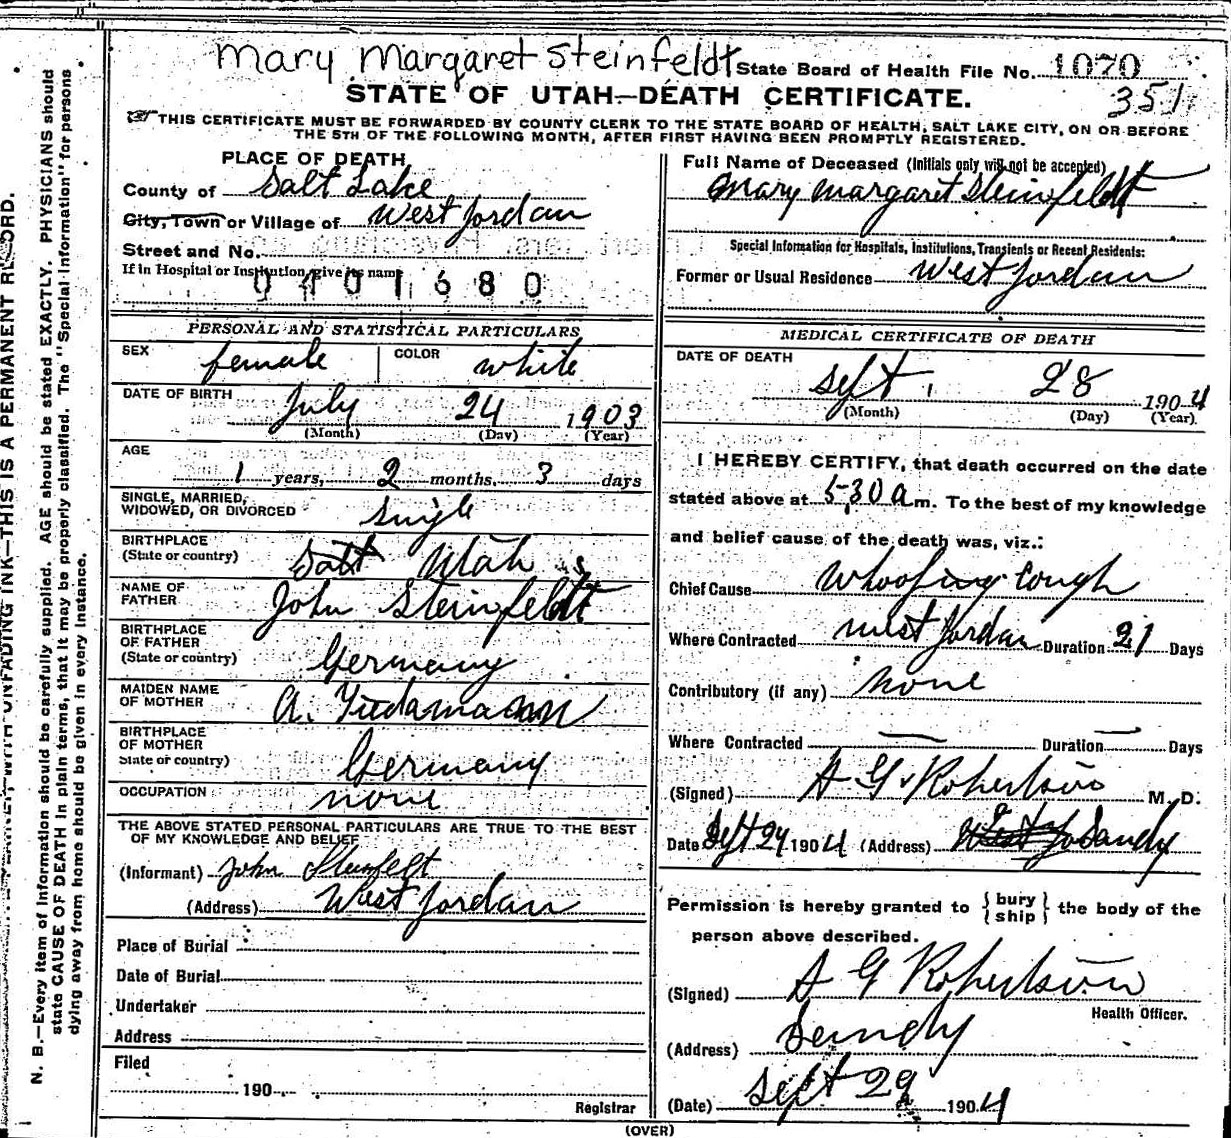 Mary Margaret Steinfeldt State Board of Health File No. 1070
STATE OF UTAH—DEATH CERTIFICATE. 351
THIS CERTIFICATE MUST BE FORWARDED BY COUNTY CLERK TO THE STATE BOARD OF HEALTH, SALT LAKE CITY, ON OR BEFORE
THE 5TH OF THE FOLLOWING MONTH, AFTER FIRST HAVING BEEN PROMPTLY REGISTERED.
PLACE OF DEATH
County of Salt Lake
City, Town or Village of West Jordan
Street and No.
If in Hospital or Institution, give its name
0401680
PERSONAL AND STATISTICAL PARTICULARS
SEX female COLOR white
DATE OF BIRTH July 24 1903
(Month) (Day) (Year)
AGE
1 years, 2 months, 3 days
SINGLE, MARRIED,
WIDOWED, OR DIVORCED single
BIRTHPLACE
(State or country) Salt Utah
NAME OF
FATHER John Steinfeldt
BIRTHPLACE
OF FATHER
(State or country) Germany
MAIDEN NAME
OF MOTHER A.
BIRTHPLACE
OF MOTHER
State or country) Germany
OCCUPATION none
THE ABOVE STATED PERSONAL PARTICULARS ARE TRUE TO THE BEST
OF MY KNOWLEDGE AND BELIEF
(Informant) John Steinfelt
(Address) West Jordan
Place of Burial
Date of Burial
Undertaker
Address
Filed
190
Registrar
Full Name of Deceased (Initials only will not be accepted)
Mary Margaret Steinfeldt
Special Information for Hospitals, Institutions, Transients or Recent Residents:
Former or Usual Residence West Jordan
MEDICAL CERTIFICATE OF DEATH
DATE OF DEATH
Sept. 28 1904
(Month) (Day) (Year)
I HEREBY CERTIFY, that death occurred on the date
stated above at 5 30 a m. To the best of my knowledge
and belief cause of the death was, viz.:
Chief Cause Whooping Cough
Where Contracted West Jordan Duration 21 Days
Contributory (if any) None
Where Contracted — Duration — Days
(Signed) A G Robertson M. D.
Date Sept 29 1904 (Address) West Jo Sandy
Permission is hereby granted to { bury
ship } the body of the
person above described.
(Signed) A G Robertson
Health Officer.
(Address) Sandy
(Date) Sept 29 1904
(OVER)
N. B.—Every item of information should be carefully supplied. AGE should be stated EXACTLY. PHYSICIANS should
state CAUSE OF DEATH in plain terms, that it may be properly classified. The "Special Information" for persons
dying away from home should be given in every instance.
UNFADING INK—THIS IS A PERMANENT RECORD.